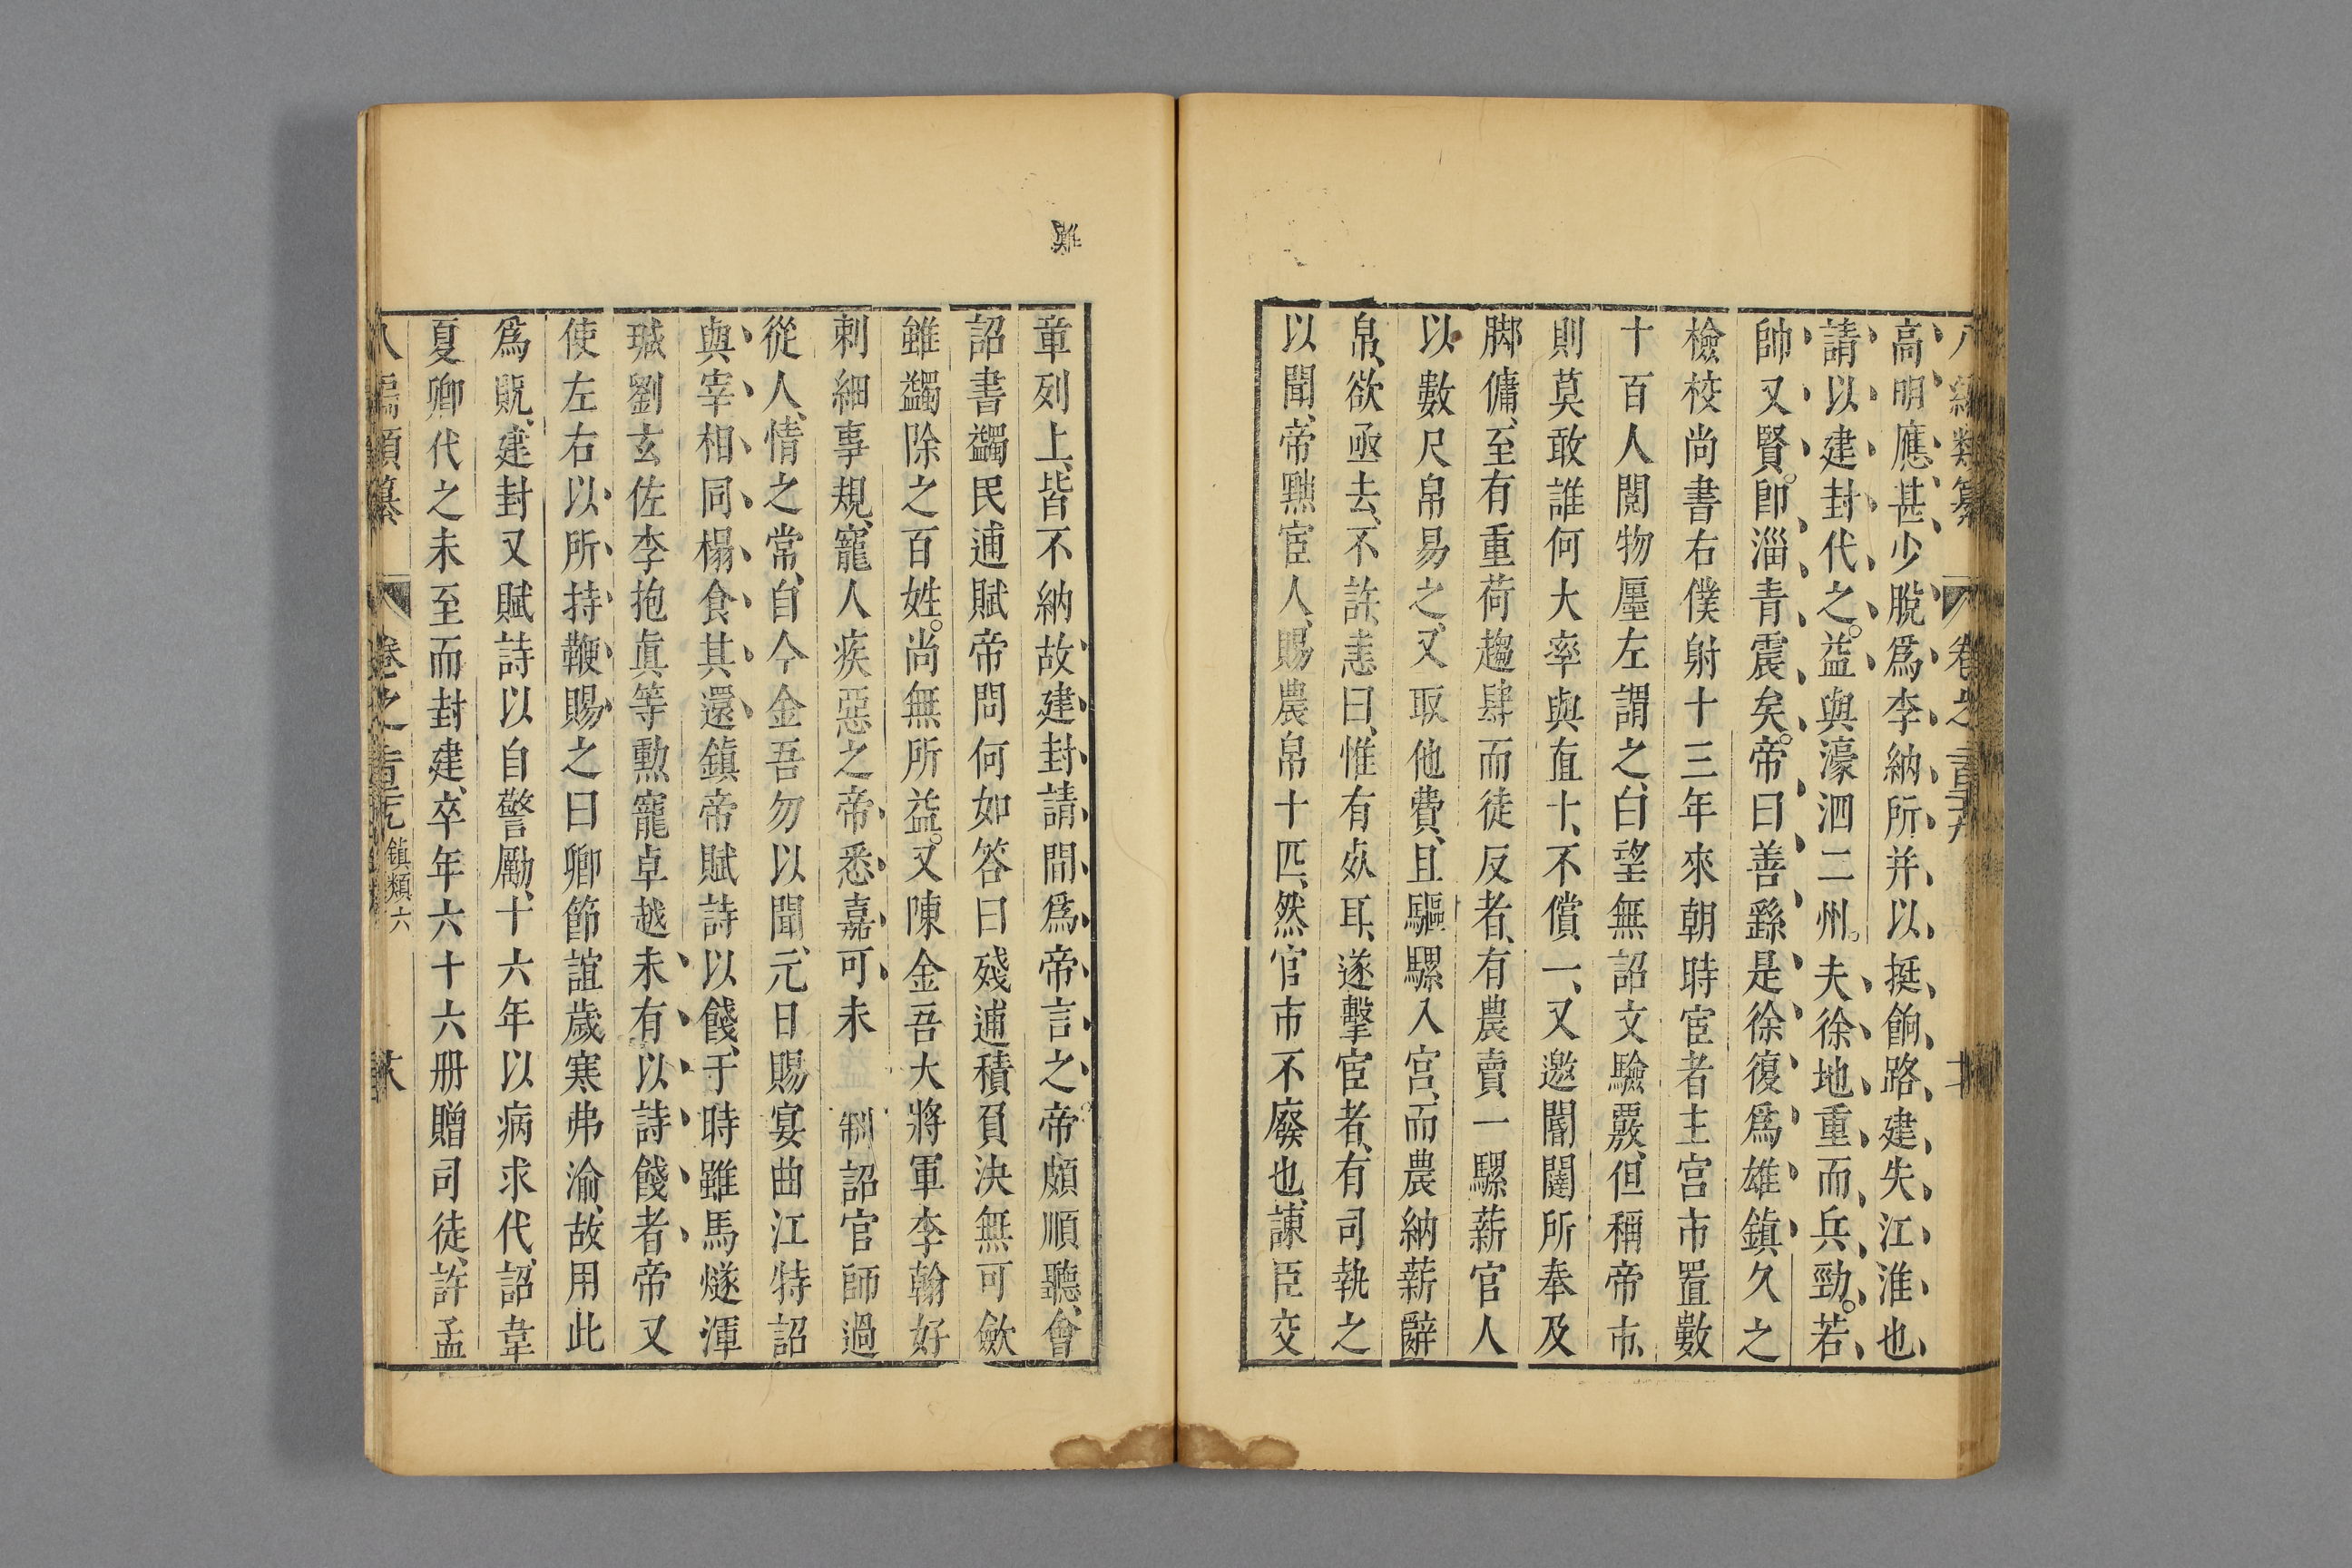 八編類纂 卷之
高明應甚少脫爲李納所并以挺餉路建失江淮也
請以建封代之益與濠泗二州夫徐地重而兵勁若
帥又賢卽淄青震矣帝曰善繇是徐復爲雄鎮久之
檢校尚書右僕射十三年來朝時宦者主宮市置數
十百人閱物廛左謂之白望無詔文驗覈但稱帝市
則莫敢誰何大率與直十不償一又邀閽闥所奉及
脚傭至有重荷趨肆而徒反者有農賣一驢薪宦人
以數尺帛易之又取他費且驅驢入宮而農納薪辭
帛欲亟去不許恚曰惟有死耳遂擊宦者有司執之
以聞帝黜宦人賜農帛十匹然官市不廢也諫臣交
章列上皆不納故建封請間爲帝言之帝頗順聽會
詔書蠲民逋賦帝問何如答曰殘逋積負決無可斂
雖蠲除之百姓尚無所益又陳金吾大將軍李翰好
刺細事規寵人疾惡之帝悉嘉可未 制詔官師過
從人情之常自今金吾勿以聞元日賜宴曲江特詔
與宰相同榻食其還鎮帝賦詩以餞于時雖馬燧渾
瑊劉玄佐李抱眞等勲寵卓越未有以詩餞者帝又
使左右以所持鞭賜之曰卿節誼歲寒弗渝故用此
爲貺建封又賦詩以自警勵十六年以病求代詔韋
夏卿代之未至而封建卒年六十六册贈司徒許孟
八編類纂 卷之 鎮類六